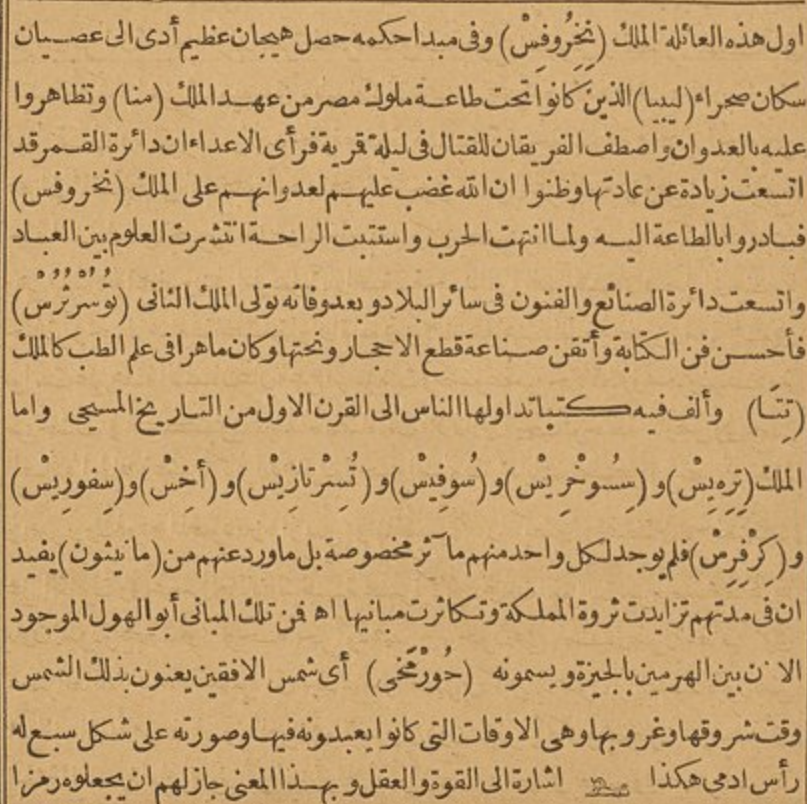 اول هذه العائلة الملك (نِخِرُوفِسْ) وفى مبدا حكمه حصل هيجان عظيم أدى الى عصيان
سكان صحراء (ليبيا) الذين كانوا تحت طاعة ملوك مصر من عهد الملك (منا) وتظاهروا
عليه بالعدوان واصطف الفريقان للقتال فى ليلة قرية فرأى الاعداء ان دائرة القمر قد
اتسعت زيادة عن عادتها وظنوا ان الله غضب عليهم لعدوانهم على الملك (نخروفس)
فبادروا بالطاعة اليه ولما انتهت الحرب واستتبت الراحة انتشرت العلوم بين العباد
واتسعت دائرة الصنائع والفنون فى سائر البلاد و بعد وفاته تولى الملك الثانى (تُوسُرْثُرُسْ)
فأحسن فن الكتابة وأتقن صناعة قطع الاحجار ونحتها وكان ماهرا فى علم الطب كالملك
(تِتَا) وألف فيه كتبا تداولها الناس الى القرن الاول من التاريخ المسيحى واما
الملك (تِرِيسْ) و (سِسُوخْرِيسْ) و (سُوفِيسْ) و (تُسِرْتازِيسْ) و (أَخِسْ) و (سِفُورِيسْ)
و (كِرْفِرِسْ) فلم يوجد لكل واحد منهم مآثر مخصوصة بل ما ورد عنهم من (مانيثون) يفيد
ان فى مدتهم تزايدت ثروة المملكة وتكاثرت مبانيها اه فمن تلك المبانى أبو الهول الموجود
الآن بين الهرمين بالجيزة و يسمونه (حُورْمَخِى) أى شمس الافقين يعنون بذلك الشمس
وقت شروقها وغروبها وهى الاوقات التى كانوا يعبدونه فيها وصورته على شكل سبع له
رأس ادمى هكذا اشارة الى القوة والعقل و بهذا المعنى جاز لهم ان يجعلوه رمزا